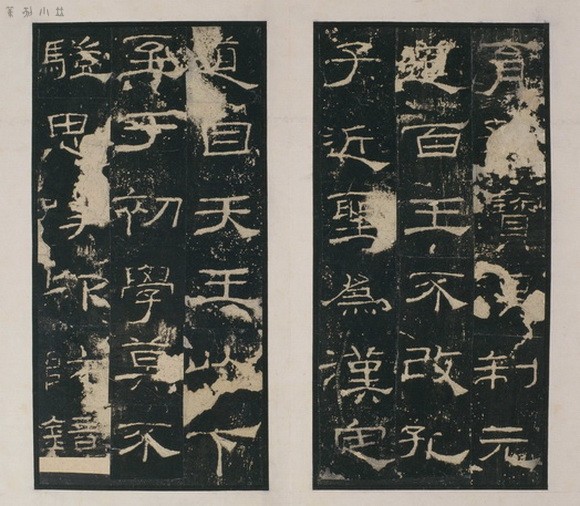 育寶俱制元
道百王不改孔
子近聖為漢定
道自天王以下
至于初學莫不
驥思嘆卬師鏡